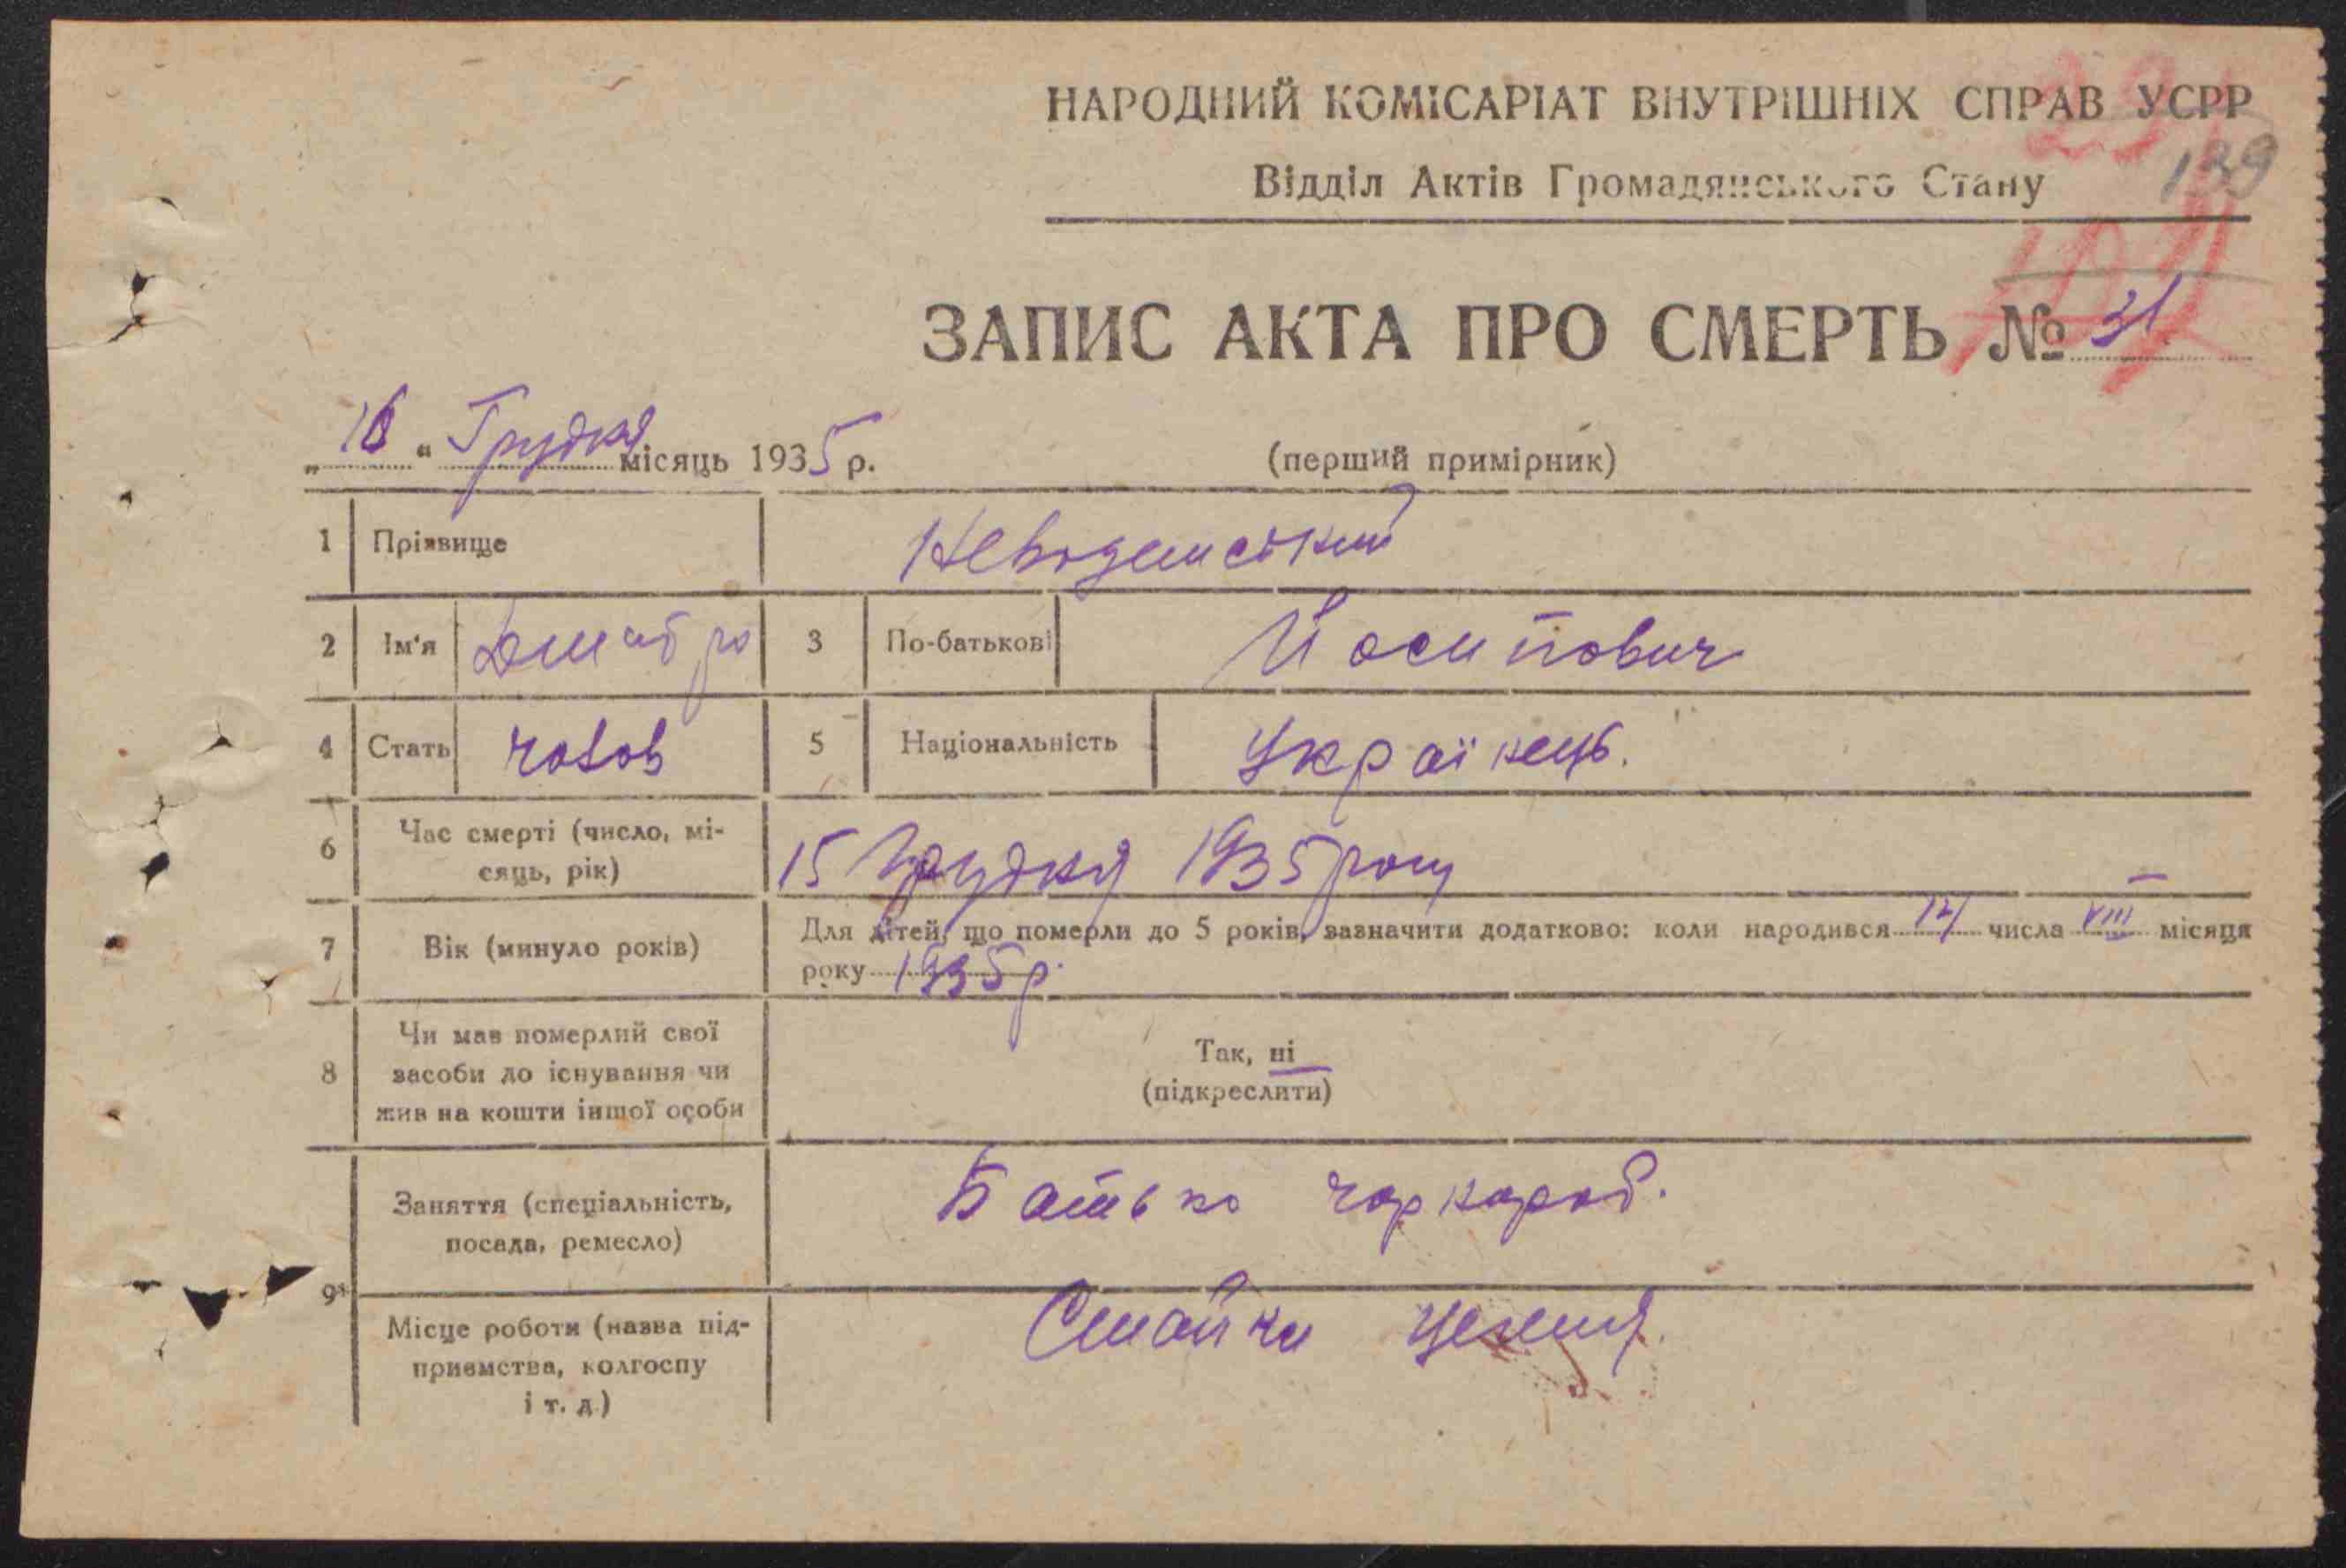 НАРОДНИЙ КОМІСАРІАТ ВНУТРІШНІХ СПРАВ УСРР
139
Відділ Актів Громадянського Стану
ЗАПИС АКТА ПРО СМЕРТЬ № 31
„16“ Грудня місяць 1935 р.
(перший примірник)
1 Прізвище
2 Ім'я Дмитро 3 По-батькові Йосипович
4 Стать чолов 5 Національність Українець.
6 Час смерті (число, мі-
сяць, рік) 15 Грудня 1935 року
7 Вік (минуло років) Для дітей, що померли до 5 років, зазначити додатково: коли народився числа VIII місяця
року 1935 р.
8 Чи мав померлий свої
засоби до існування чи
жив на кошти іншої особи
Так, ні
(підкреслити)
9 Заняття (спеціальність,
посада, ремесло) Батько чорнороб.
Місце роботи (назва під-
приємства, колгоспу
і т. д.)